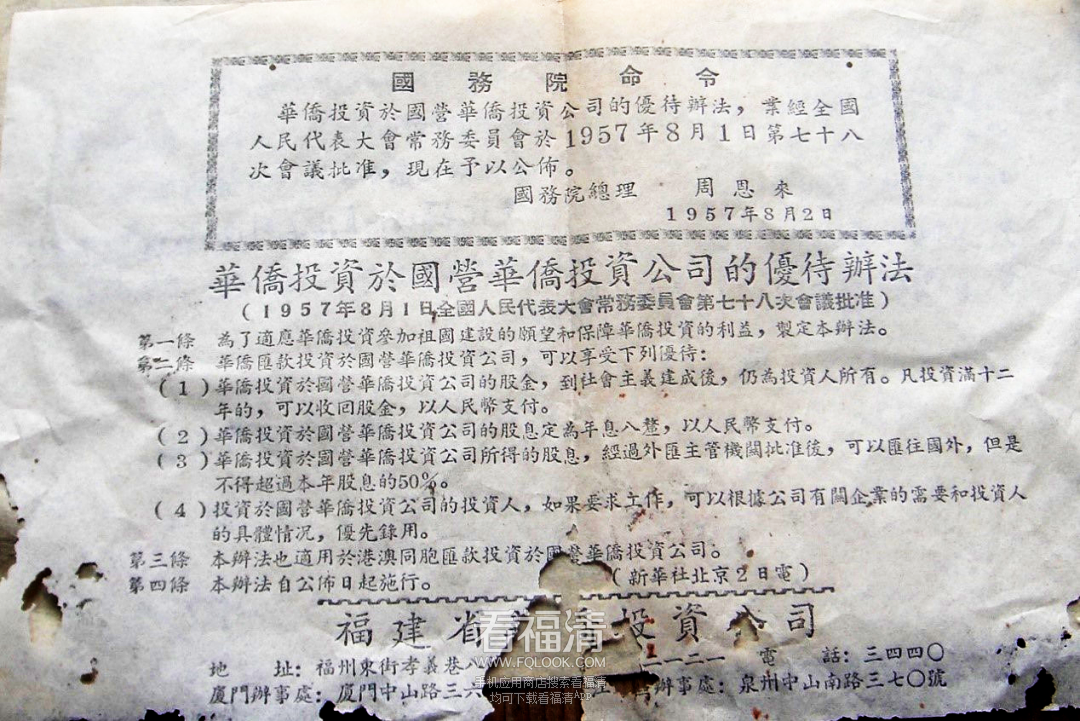 國務院命令
華僑投資於國營華僑投資公司的優待辦法，業經全國
人民代表大會常務委員會於1957年8月1日第七十八
次會議批准，現在予以公佈。
國務院總理　周恩來
1957年8月2日
華僑投資於國營華僑投資公司的優待辦法
(1957年8月1日全國人民代表大會常務委員會第七十八次會議批准)
第一條　為了適應華僑投資參加祖國建設的願望和保障華僑投資的利益，製定本辦法。
第二條　華僑匯款投資於國營華僑投資公司，可以享受下列優待：
(1)華僑投資於國營華僑投資公司的股金，到社會主義建成後，仍為投資人所有。凡投資滿十二
年的，可以收回股金，以人民幣支付。
(2)華僑投資於國營華僑投資公司的股息定為年息八釐，以人民幣支付。
(3)華僑投資於國營華僑投資公司所得的股息，經過外匯主管機關批准後，可以匯往國外，但是
不得超過本年股息的50%。
(4)投資於國營華僑投資公司的投資人，如果要求工作，可以根據公司有關企業的需要和投資人
的具體情況，優先錄用。
第三條　本辦法也適用於港澳同胞匯款投資於國營華僑投資公司。
第四條　本辦法自公佈日起施行。　(新華社北京2日電)
福建省　投資公司
地　址：福州東街孝義巷八　二一二一　電　話：三四四〇
廈門辦事處：廈門中山路三六　辦事處：泉州中山南路三七〇號
看福清
WWW.FQLOOK.COM
手机应用商店搜索看福清
均可下载看福清App